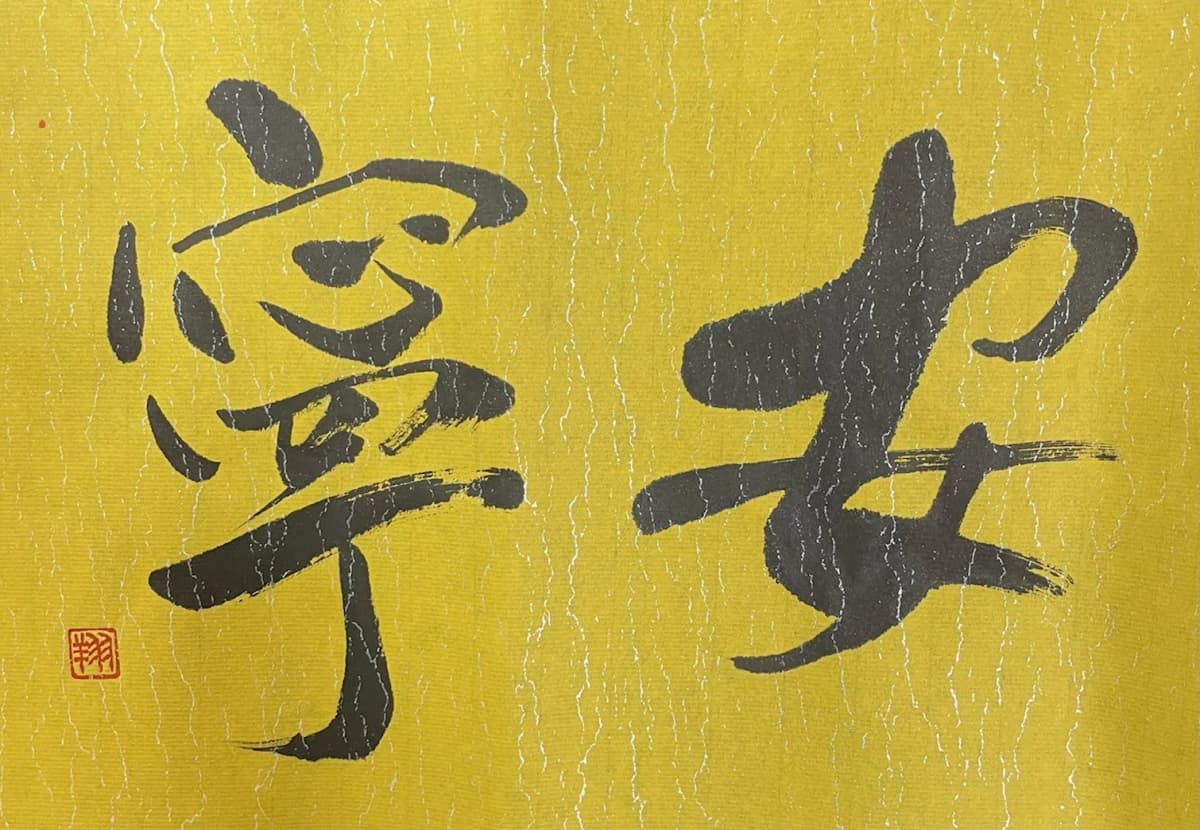 安寧
翔